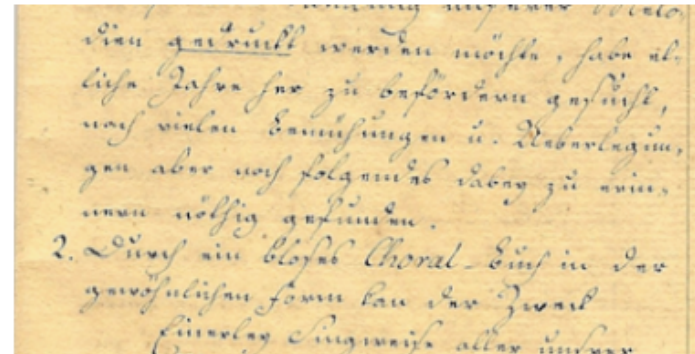 unserer Melo-
dien gedruckt werden möchte, habe et-
liche Jahre her zu befördern gesucht,
nach vielen Bemühungen u. Ueberlegun-
gen aber noch folgendes dabey zu erin-
nern nöthig gefunden.
2. Durch ein bloses Choral-Buch in der
gewöhnlichen Form kan der Zweck
Einerley Singweise aller unsrer